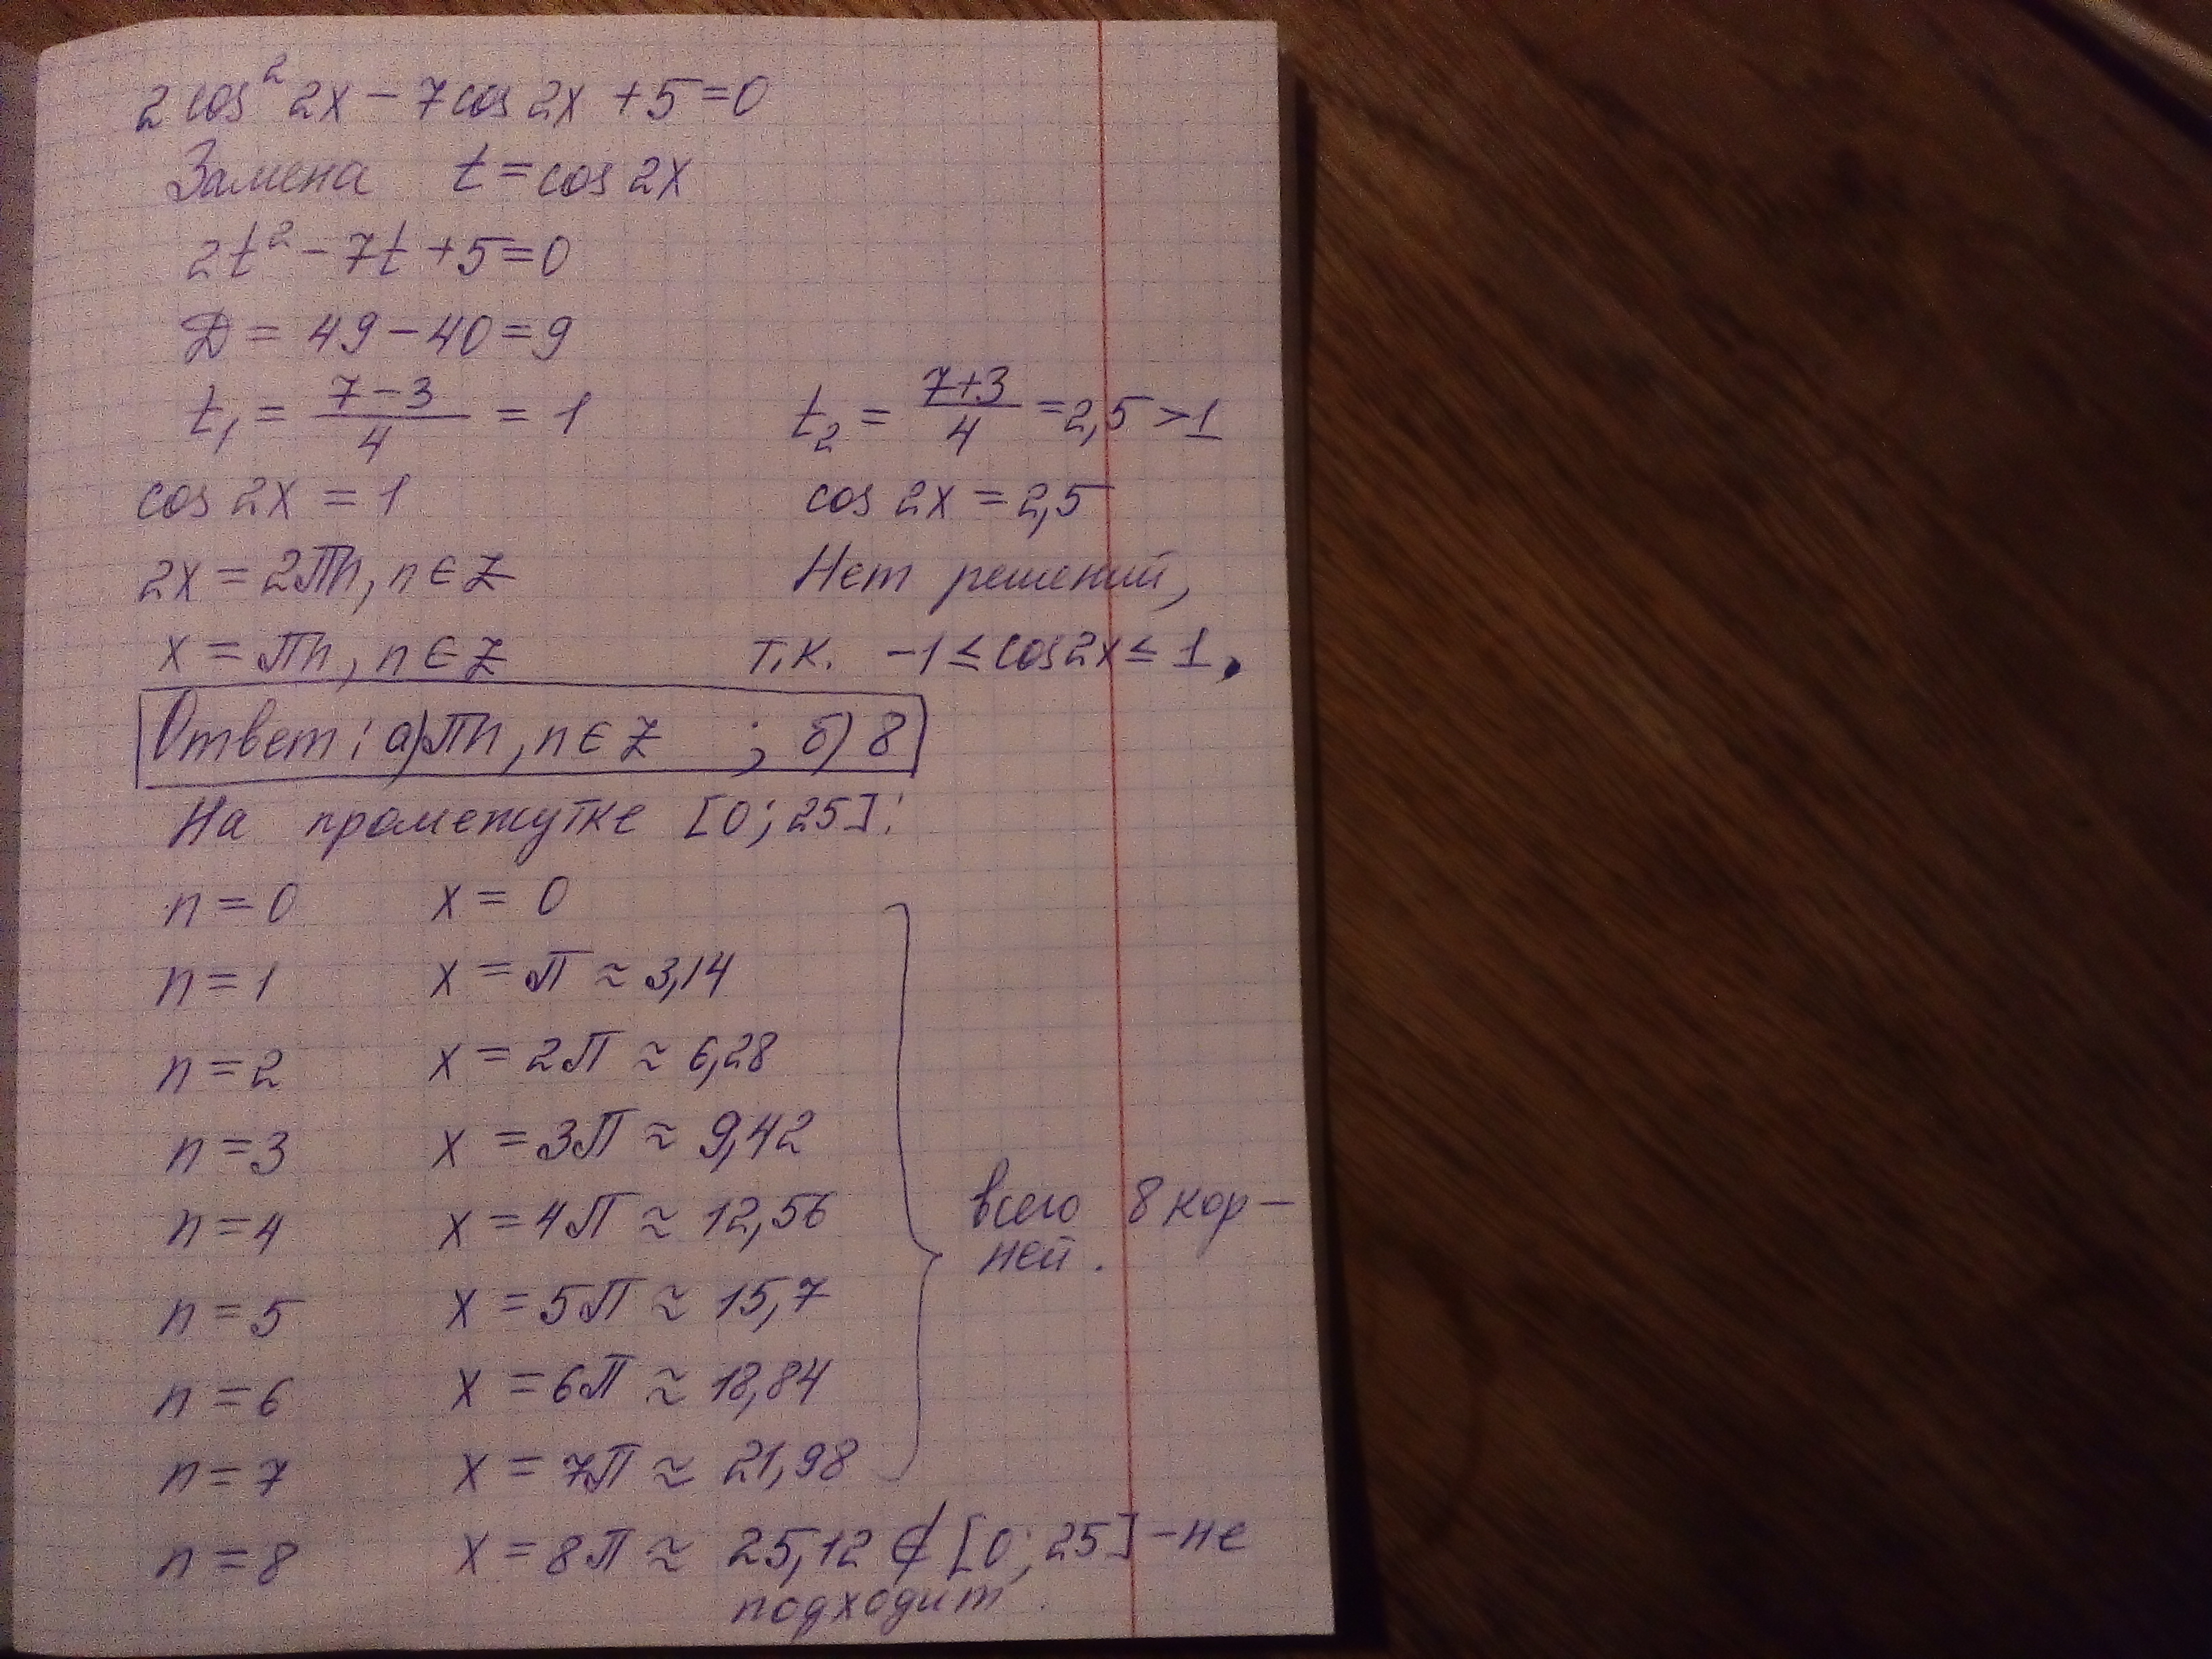 2 cos² 2x − 7 cos 2x + 5 = 0
Замена t = cos 2x
2t² − 7t + 5 = 0
D = 49 − 40 = 9
t₁ = (7 − 3)/4 = 1 t₂ = (7 + 3)/4 = 2,5 > 1
cos 2x = 1 cos 2x = 2,5
2x = 2πn, n ∈ Z Нет решений,
x = πn, n ∈ Z т.к. −1 ≤ cos 2x ≤ 1.
Ответ: а) πn, n ∈ Z ; б) 8
На промежутке [0; 25]:
n = 0 x = 0
n = 1 x = π ≈ 3,14
n = 2 x = 2π ≈ 6,28
n = 3 x = 3π ≈ 9,42
n = 4 x = 4π ≈ 12,56
всего 8 кор-
ней.
n = 5 x = 5π ≈ 15,7
n = 6 x = 6π ≈ 18,84
n = 7 x = 7π ≈ 21,98
n = 8 x = 8π ≈ 25,12 ∉ [0; 25] - не
подходит.